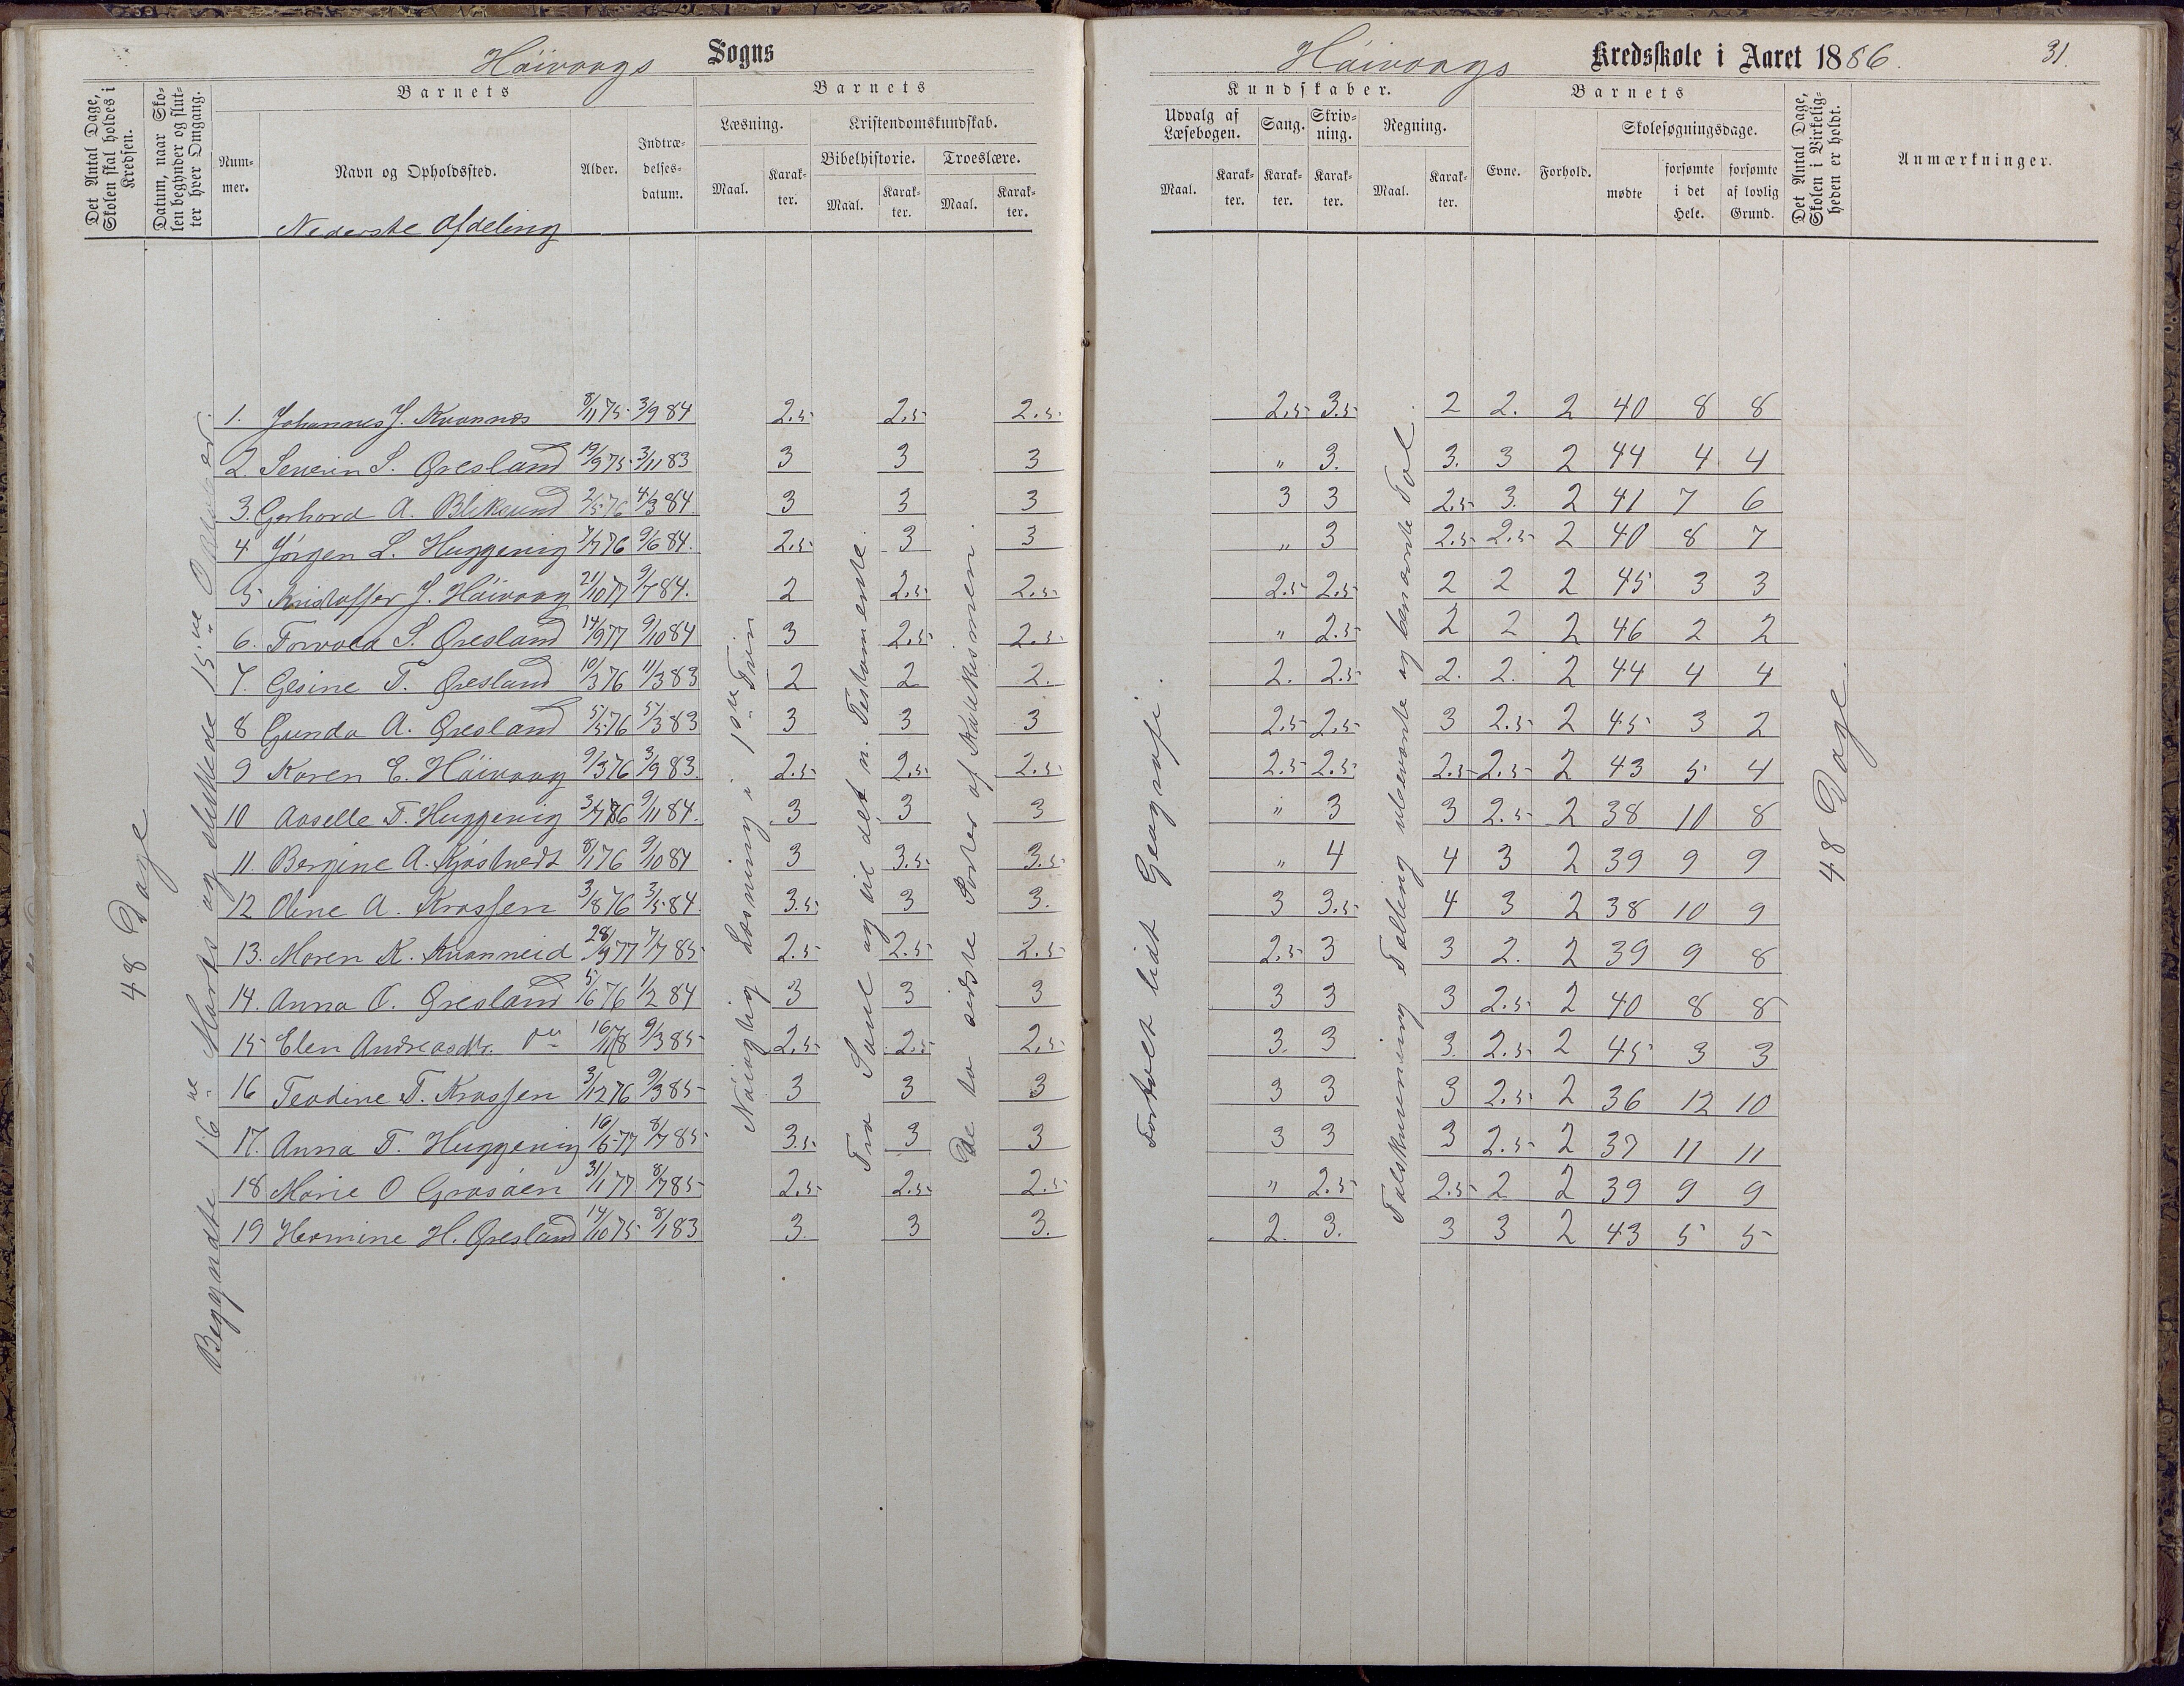 Høivaags Sogns
Det Antal Dage, Skolen skal holdes i Kredsen.
Datum, naar Skolen begynder og slutter hver Omgang.
Barnets
Nummer.
Navn og Opholdssted.
Alder.
Indtrædelsesdatum.
Barnets
Læsning.
Maal.
Karakter.
Kristendomskundskab.
Bibelhistorie.
Maal.
Karakter.
Troeslære.
Maal.
Karakter.
Nederste Afdeling
48 Dage
Begyndte 16de Marts og sluttede 15de Oktober.
Nøiagtig Læsning i 1ste Trin
Fra Saul og til det n. Testamente.
De to sidste Parter af Katekismen.
1. Johannes J. Kvannes 8/11 75 3/9 84 2.5 2.5 2.5
2 Severin S. Øresland 19/9 75 3/11 83 3 3 3
3. Gerhard A. Bliksund 2/5 76 4/3 84 3 3 3
4 Jørgen L. Huggenig 7/7 76 9/6 84. 2.5 3 3
5 Kristoffer J. Høivaag 21/10 77 9/7 84. 2 2.5 2.5
6. Torvald S. Øresland 14/9 77 9/10 84 3 2.5 2.5
7. Gesine T. Øresland 10/3 76 11/3 83 2 2 2.
8 Gunda A. Øresland 5/5 76 5/3 83 3 3 3
9 Karen E. Høivaag 9/3 76 3/9 83. 2.5 2.5 2.5
10 Aaselle T. Huggenig 3/7 76 9/11 84. 3 3 3
11. Bergine A. Kjøstvedt 8/1 76 9/10 84 3 3.5 3.5
12 Oline A. Krossen 3/8 76 3/5 84. 3.5 3 3.
13. Maren K. Kvanneid 28/9 77 7/7 85 2.5 2.5 2.5
14. Anna O. Øresland 5/6 76 1/2 84 3 3 3
15 Elen Andreasdtr. do 16/1 78 9/3 85 2.5 2.5 2.5
16 Teodine T. Krossen 3/12 76 9/3 85 3 3 3
17. Anna T. Huggenig 16/5 77 8/7 85 3.5 3 3
18 Marie O Grøsøen 31/1 77 8/7 85 2.5 2.5 2.5
19 Hermine H. Øresland 14/10 75 8/1 83 3. 3 3.
Høivaags Kredsskole i Aaret 1886.
31.
Kundskaber.
Udvalg af Læsebogen.
Maal.
Karakter.
Sang.
Karakter.
Skrivning.
Karakter.
Regning.
Maal.
Karakter.
Barnets
Evne.
Forhold.
Skolesøgningsdage.
mødte
forsømte i det Hele.
forsømte af lovlig Grund.
Det Antal Dage, Skolen i Virkeligheden er holdt.
Anmærkninger.
Fortalt lidt Geografi.
Talskrivning Tælling ubenævnte og benævnte Tal.
48 Dage.
2.5 3.5 2 2. 2 40 8 8
" 3. 3. 3 2 44 4 4
3 3 2.5 3. 2 41 7 6
" 3 2.5 2.5 2 40 8 7
2.5 2.5 2 2 2 45 3 3
" 2.5 2 2 2 46 2 2
2. 2.5 2. 2. 2 44 4 4
2.5 2.5 3 2.5 2 45 3 2
2.5 2.5 2.5 2.5 2 43 5 4
" 3 3 2.5 2 38 10 8
" 4 4 3 2 39 9 9
3 3.5 4 3 2 38 10 9
2.5 3 3 2. 2 39 9 8
3 3 3 2.5 2 40 8 8
3. 3 3. 2.5 2 45 3 3
3 3 3 2.5 2 36 12 10
3 3 3 2.5 2 37 11 11
" 2.5 2.5 2 2 39 9 9
2. 3. 3 3 2 43 5 5